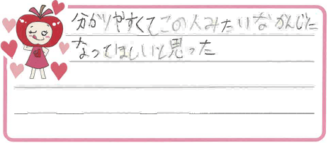 分かりやすくてこの人みたいなかんじに
なってほしいと思った